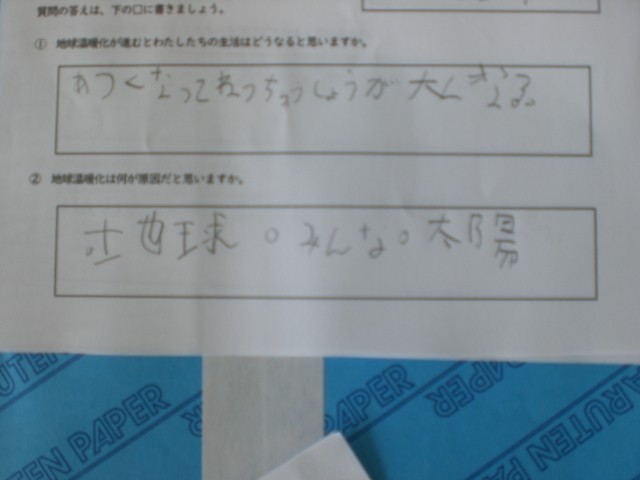 質問の答えは、下の□に書きましょう。
① 地球温暖化が進むとわたしたちの生活はどうなると思いますか。
あつくなってねっちゅうしょうが大くなる。
② 地球温暖化は何が原因だと思いますか。
地球。みんな。太陽
RUTEN PAPER
PAPER
PAPER
ARUTEN PAP